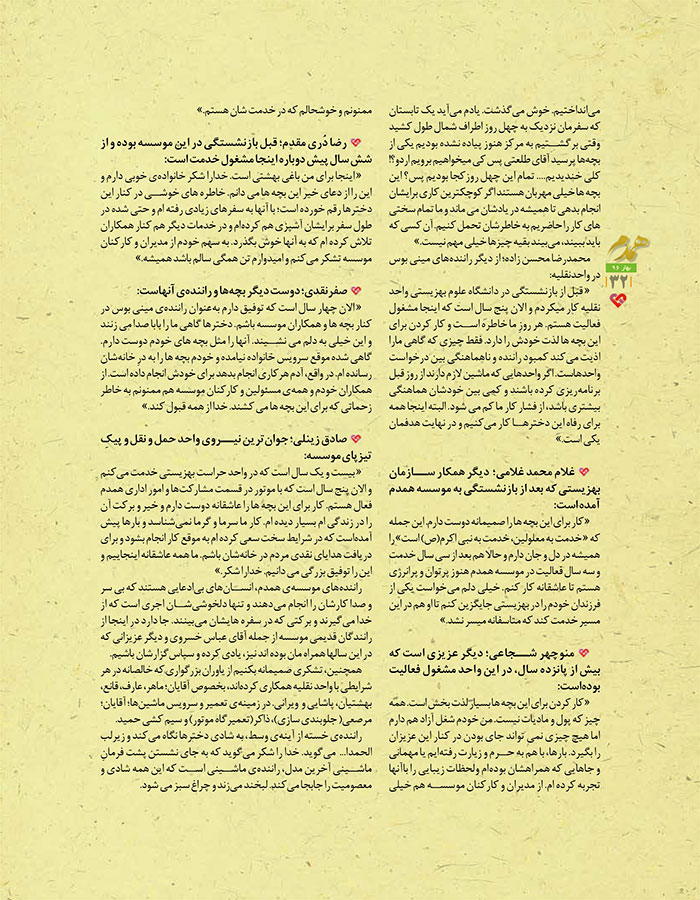 می‌انداختیم. خوش می‌گذشت. یادم می‌آید یک تابستان
که سفرمان نزدیک به چهل روز اطراف شمال طول کشید
وقتی برگشتیم به مرکز هنوز پیاده نشده بودیم یکی از
بچه‌ها پرسید آقای طلعتی پس کی میخواهیم برویم اردو؟!
کلی خندیدیم.... تمام این چهل روز کجا بودیم پس؟ این
بچه‌ها خیلی مهربان هستند اگر کوچکترین کاری برایشان
انجام بدهی تا همیشه در یادشان می‌ماند و ما تمام سختی
های کار را حاضریم به خاطرشان تحمل کنیم. آن کسی که
باید ببیند، می‌بیند بقیه چیزها خیلی مهم نیست.»
محمدرضا محسن زاده؛ از دیگر راننده‌های مینی بوس
در واحد نقلیه:
«قبل از بازنشستگی در دانشگاه علوم بهزیستی واحد
نقلیه کار میکردم و الان پنج سال است که اینجا مشغول
فعالیت هستم. هر روز ما خاطره است و کار کردن برای
این بچه ها لذت خودش را دارد. فقط چیزی که گاهی ما را
اذیت می‌کند کمبود راننده و ناهماهنگی بین درخواست
واحدهاست. اگر واحدهایی که ماشین لازم دارند از روز قبل
برنامه‌ریزی کرده باشند و کمی بین خودشان هماهنگی
بیشتری باشد، از فشار کار ما کم می شود. البته اینجا همه
برای رفاه این دخترها کار می‌کنیم و در نهایت هدفمان
یکی است.»
غلام محمد غلامی؛ دیگر همکار سازمان
بهزیستی که بعد از بازنشستگی به موسسه همدم
آمده است:
«کار برای این بچه ها را صمیمانه دوست دارم. این جمله
که «خدمت به معلولین، خدمت به نبی اکرم(ص) است» را
همیشه در دل و جان دارم و حالا هم بعد از سی سال خدمت
و سه سال فعالیت در موسسه همدم هنوز پرتوان و پرانرژی
هستم تا عاشقانه کار کنم. خیلی دلم می‌خواست یکی از
فرزندان خودم را در بهزیستی جایگزین کنم تا او هم در این
مسیر خدمت کند که متاسفانه میسر نشد.»
منوچهر شجاعی؛ دیگر عزیزی است که
بیش از پانزده سال، در این واحد مشغول فعالیت
بوده است:
«کار کردن برای این بچه ها بسیار لذت بخش است. همه
چیز که پول و مادیات نیست. من خودم شغل آزاد هم دارم
اما هیچ چیزی نمی تواند جای بودن در کنار این عزیزان
را بگیرد. بارها، با هم به حرم و زیارت رفته‌ایم یا مهمانی
و جاهایی که همراهشان بوده‌ام ولحظات زیبایی را با آنها
تجربه کرده ام. از مدیران و کارکنان موسسه هم خیلی
ممنونم و خوشحالم که در خدمت شان هستم.»
رضا دُری مقدم؛ قبل بازنشستگی در این موسسه بوده و از
شش سال پیش دوباره اینجا مشغول خدمت است:
«اینجا برای من باغی بهشتی است. خدارا شکر خانواده‌ی خوبی دارم و
این را از دعای خیر این بچه ها می دانم. خاطره های خوشی در کنار این
دخترها رقم خورده است؛ با آنها به سفرهای زیادی رفته ام و حتی شده در
طول سفر برایشان آشپزی هم کرده‌ام و در خدمات دیگر هم کنار همکاران
تلاش کرده ام که به آنها خوش بگذرد. به سهم خودم از مدیران و کارکنان
موسسه تشکر می کنم و امیدوارم تن همگی سالم باشد همیشه.»
صفر نقدی؛ دوست دیگر بچه‌ها و راننده‌ی آنهاست:
«الان چهار سال است که توفیق دارم به‌عنوان راننده‌ی مینی بوس در
کنار بچه ها و همکاران موسسه باشم. دخترها گاهی ما را بابا صدا می زنند
و این خیلی به دلم می نشیند. آنها را مثل بچه های خودم دوست دارم.
گاهی شده موقع سرویس خانواده نیامده و خودم بچه ها را به در خانه‌شان
رسانده ام. در واقع، آدم هر کاری انجام بدهد برای خودش انجام داده است. از
همکاران خودم و همه‌ی مسئولین و کارکنان موسسه هم ممنونم به خاطر
زحماتی که برای این بچه ها می کشند. خدا از همه قبول کند.»
صادق زینلی؛ جوان ترین نیروی واحد حمل و نقل و پیکِ
تیزپای موسسه:
«بیست و یک سال است که در واحد حراست بهزیستی خدمت می کنم
و الان پنج سال است که با موتور در قسمت مشارکت‌ها و امور اداری همدم
فعال هستم. کار برای این بچه ها را عاشقانه دوست دارم و خیر و برکت آن
را در زندگی ام بسیار دیده ام. کار ما سرما و گرما نمی‌شناسد و بارها پیش
آمده‌است که در شرایط سخت سعی کرده ام به موقع کار انجام بشود و برای
دریافت هدایای نقدی مردم در خانه‌شان باشم. ما همه عاشقانه اینجاییم و
این را توفیق بزرگی می دانیم. خدارا شکر.»
راننده‌های موسسه‌ی همدم، انسان‌های بی‌ادعایی هستند که بی سر
و صدا کارشان را انجام می‌دهند و تنها دلخوشی‌شان اجری است که از
خدا می گیرند و برکتی که در سفره هایشان می‌بینند. جا دارد در اینجا از
رانندگان قدیمی موسسه از جمله آقای عباس خسروی و دیگر عزیزانی که
در این سالها همراه مان بوده اند نیز، یادی کرده و سپاس گزارشان باشیم.
همچنین، تشکری صمیمانه بکنیم از یاوران بزرگواری که خالصانه در هر
شرایطی با واحد نقلیه همکاری کرده‌اند، بخصوص آقایان؛ ماهر، عارف، قانع،
بهشتیان، پاشایی و ویرانی. در زمینه‌ی تعمیر و سرویس ماشین‌ها؛ آقایان؛
مرصعی( جلوبندی سازی)، ذاکر(تعمیرگاه موتور) و سیم کشی حمید.
راننده‌ی خسته از آینه‌ی وسط، به شادی دخترها نگاه می کند و زیر لب
الحمدا... می گوید. خدا را شکر می‌گوید که به جای نشستن پشت فرمانِ
ماشینی آخرین مدل، راننده‌ی ماشینی است که این همه شادی و
معصومیت را جابجا می کند. لبخند می‌زند و چراغ سبز می شود.
همدم
بهار ۹۶
۳۲